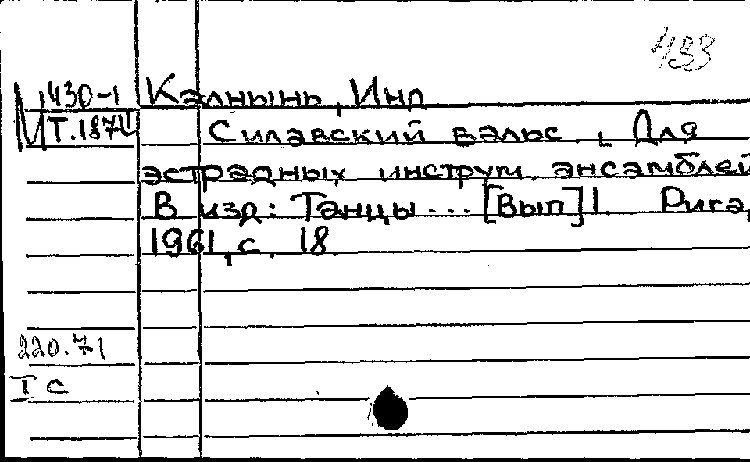 433
М 430-1 Калнынь, Инд
Т. 1874 Силавский вальс. Для
эстрадных инструм. ансамблей
В изд: Танцы ... [Вып] 1. Рига,
1961, с. 18
220.71
ТС